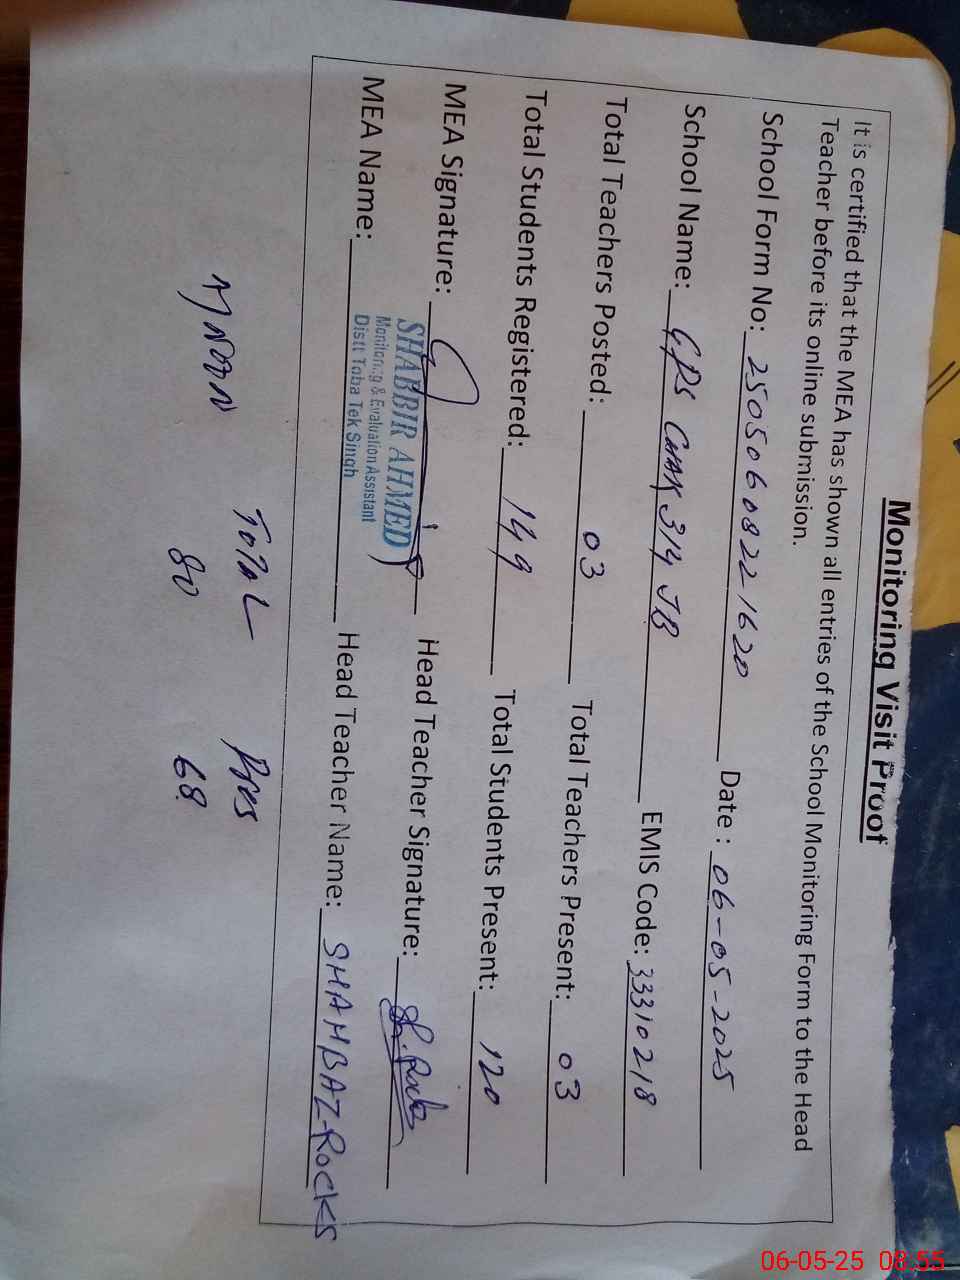 Monitoring Visit Proof
It is certified that the MEA has shown all entries of the School Monitoring Form to the Head
Teacher before its online submission.
School Form No: 25050608221620 Date : 06-05-2025
School Name: GPS CHAK 314 JB EMIS Code: 33310218
Total Teachers Posted: 03 Total Teachers Present: 03
Total Students Registered: 149 Total Students Present: 120
MEA Signature: Head Teacher Signature:
SHABBIR AHMED
Monitoring & Evaluation Assistant
Distt Toba Tek Singh
MEA Name: Head Teacher Name: SHAHBAZ-ROCKS
Total Pres
80 68
06-05-25 08:55